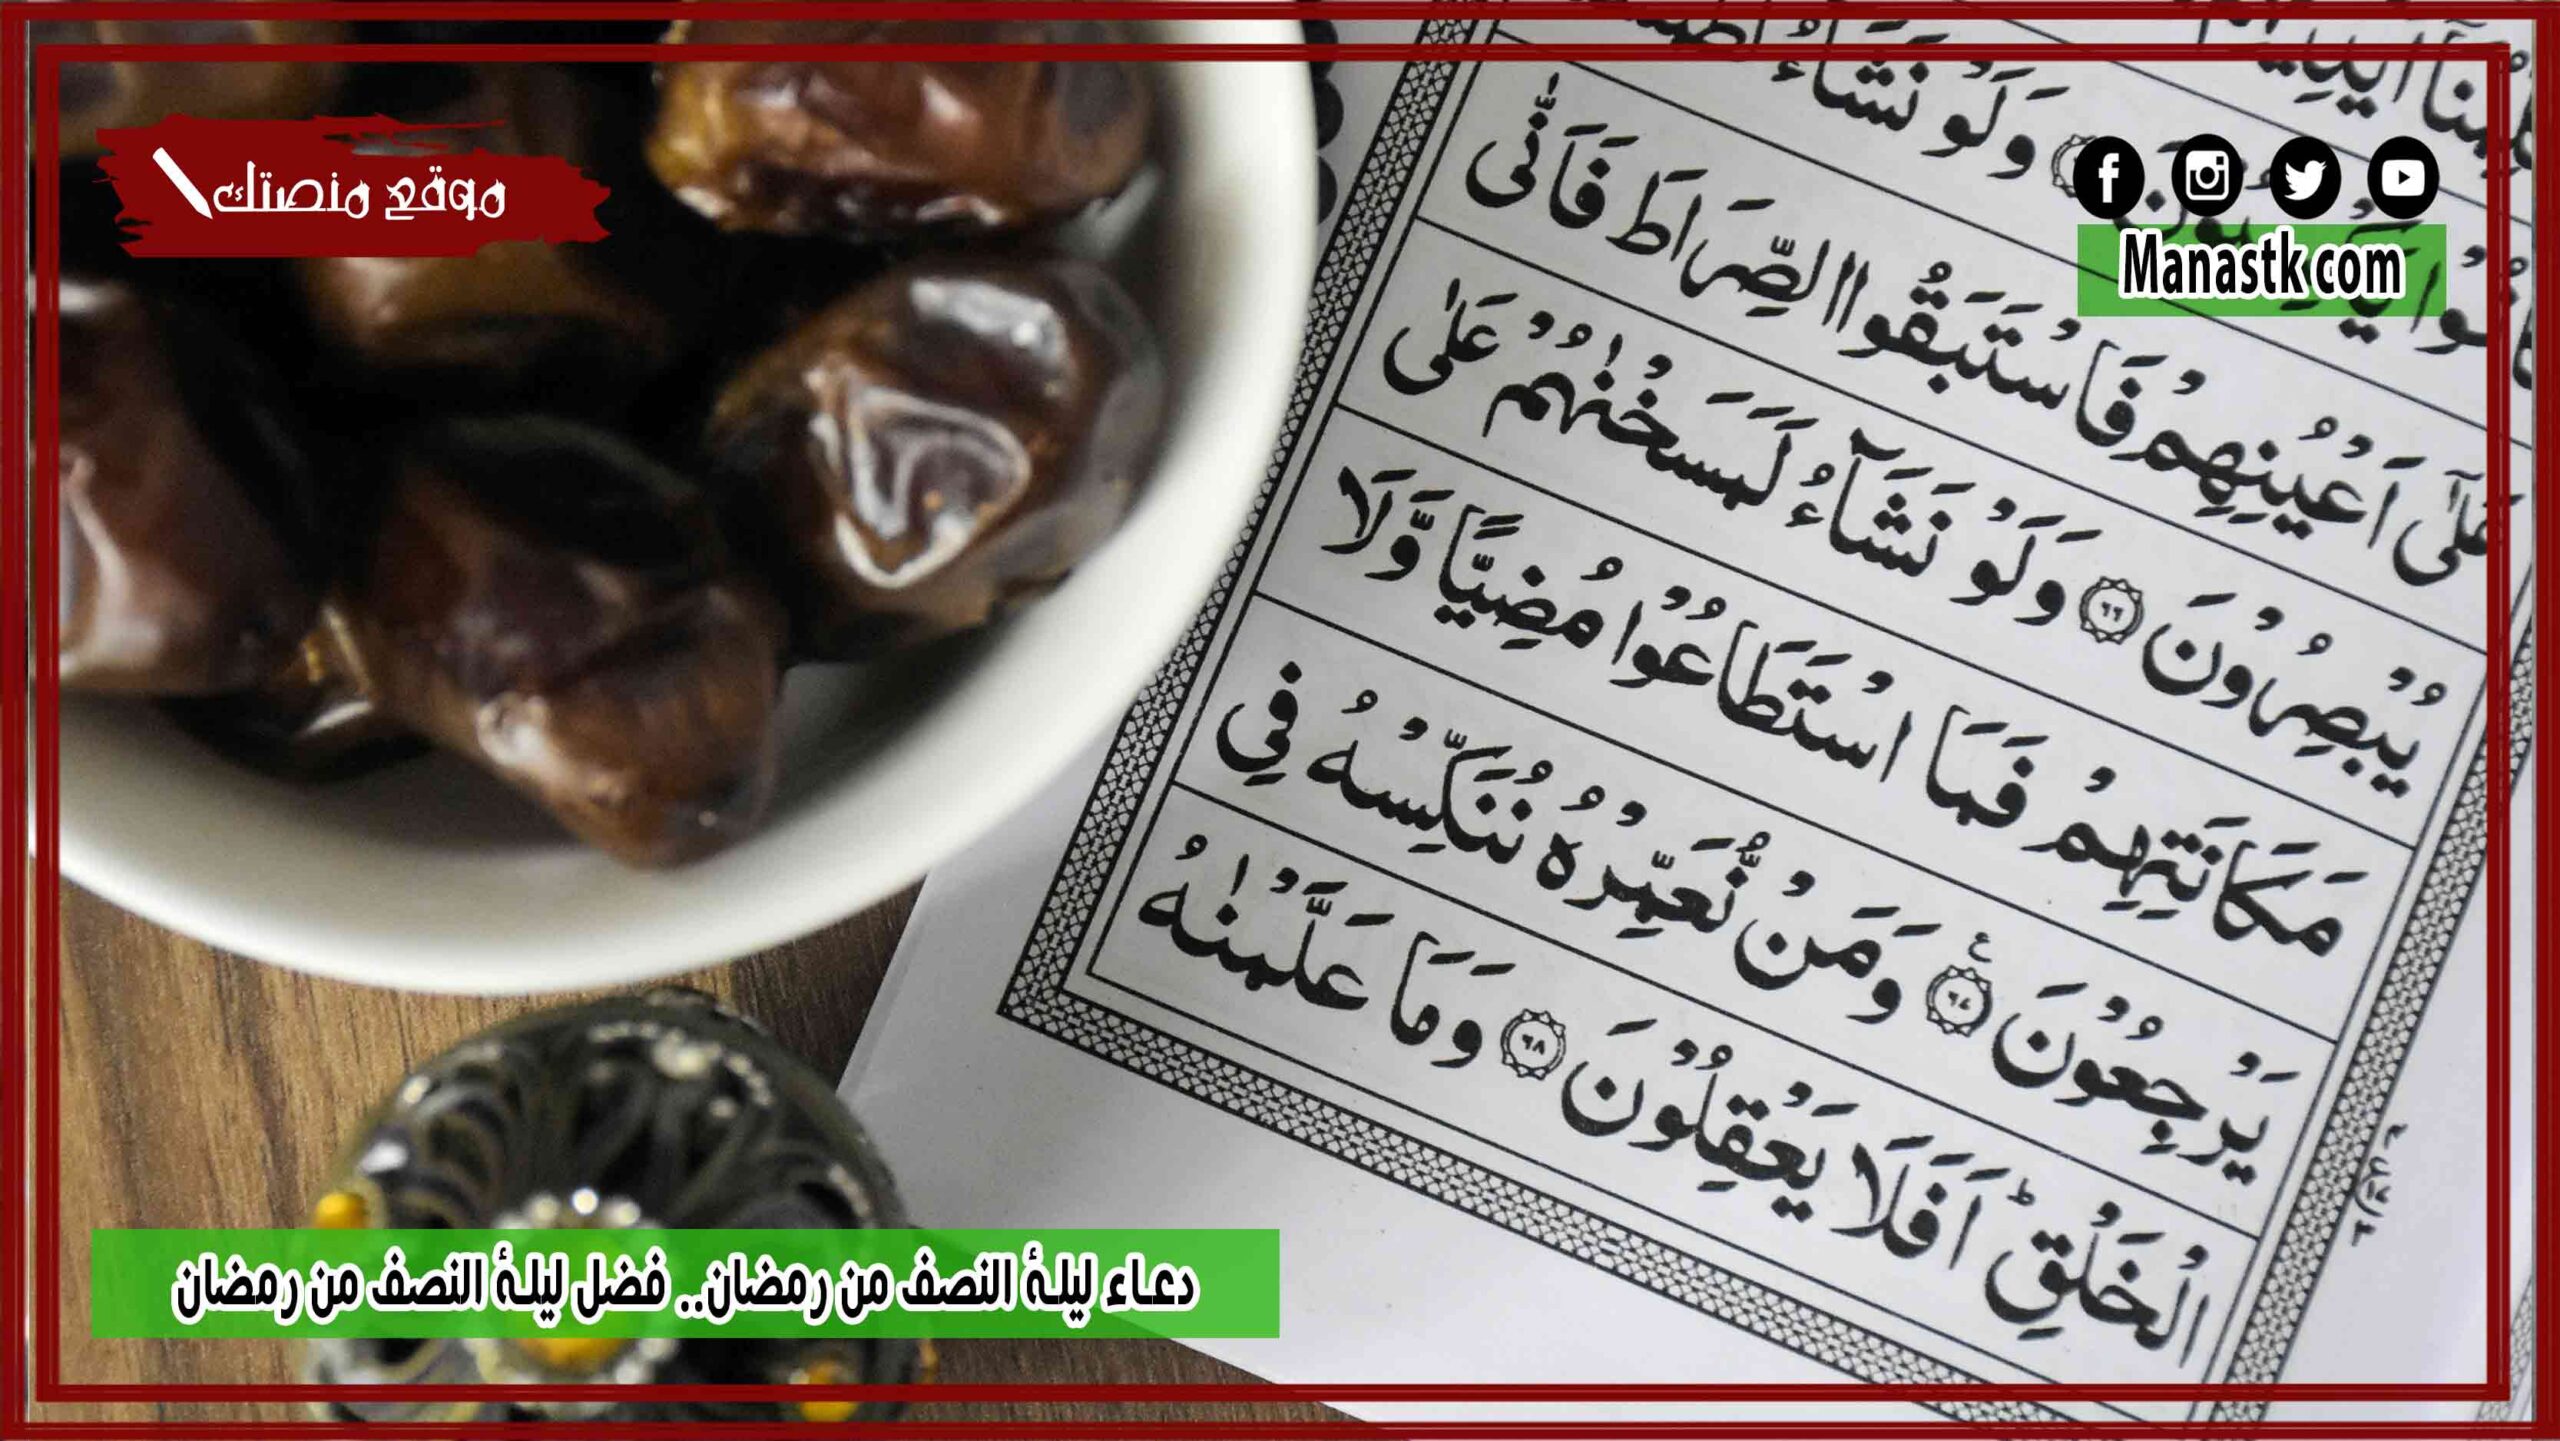 موقع منصتك
Manastk com
وَلَوْ نَشَآءُ
عَلٰٓى اَعْيُنِهِمْ فَاسْتَبَقُوا الصِّرَاطَ فَاَنّٰى
يُبْصِرُوْنَ ﴿٦٦﴾ وَلَوْ نَشَآءُ لَمَسَخْنٰهُمْ عَلٰى
مَكَانَتِهِمْ فَمَا اسْتَطَاعُوْا مُضِيًّا وَّلَا
يَرْجِعُوْنَ ﴿٦٧﴾ وَمَنْ نُّعَمِّرْهُ نُنَكِّسْهُ فِي
الْخَلْقِ ؕ اَفَلَا يَعْقِلُوْنَ ﴿٦٨﴾ وَمَا عَلَّمْنٰهُ
دعاء ليلة النصف من رمضان.. فضل ليلة النصف من رمضان